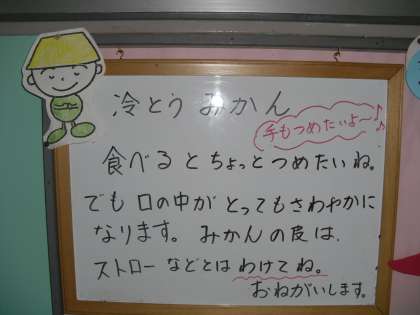 冷とうみかん
手もつめたいよ〜♪
食べるとちょっとつめたいね。
でも口の中がとってもさわやかに
なります。みかんの皮は、
ストローなどとはわけてね。
おねがいします。